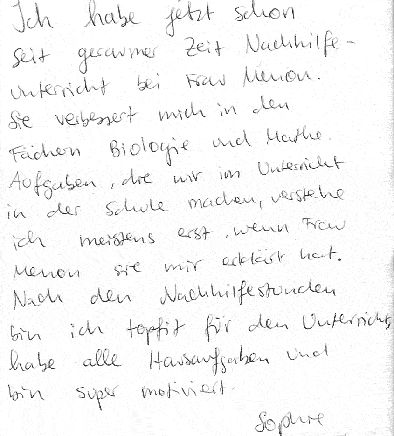 Ich habe jetzt schon
seit geraumer Zeit Nachhilfe-
unterricht bei Frau Menon.
Sie verbessert mich in den
Fächen Biologie und Mathe.
Aufgaben, die wir im Unterricht
in der Schule machen, verstehe
ich meistens erst, wenn Frau
Menon sie mir erklärt hat.
Nach den Nachhilfestunden
bin ich topfit für den Unterricht,
habe alle Hausaufgaben und
bin super motiviert.
Sophie